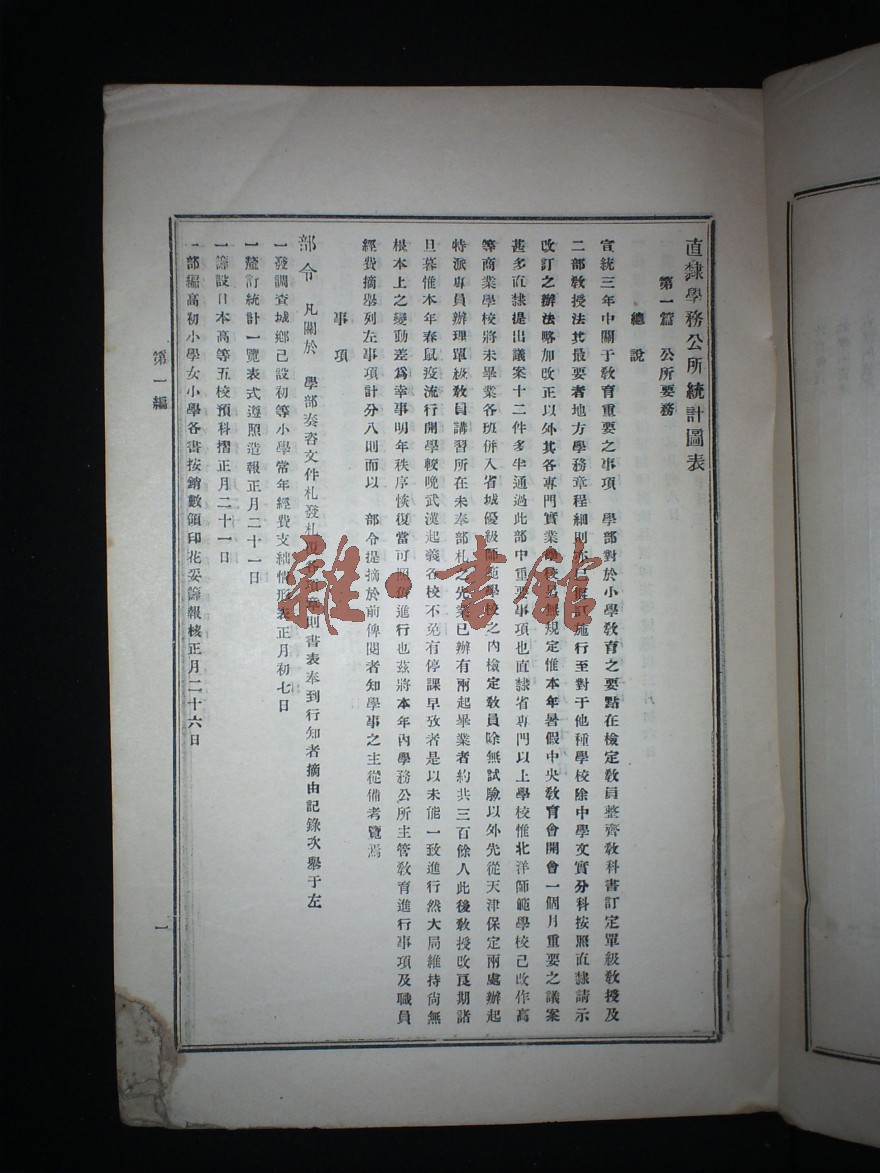 直隸學務公所統計圖表
第一篇 公所要務
總說
宣統三年中關于敎育重要之事項 學部對於小學敎育之要點在檢定敎員整齊敎科書訂定單級敎授及
二部敎授法其最要者地方學務章程細則亦已 訂施行至對于他種學校除中學文實分科按照直隸請示
改訂之辦法略加改正以外其各專門實業學校 無規定惟本年暑假中央敎育會開會一個月重要之議案
甚多直隸提出議案十二件多半通過此部中重要事項也直隸省專門以上學校惟北洋師範學校已改作高
等商業學校將未畢業各班併入省城優級師範學校之內檢定敎員除無試驗以外先從天津保定兩處辦起
特派專員辦理單級敎員講習所在未奉部札之先業已辦有兩起畢業者約共三百餘人此後敎授改良期諸
旦暮惟本年春鼠疫流行開學較晚武漢起義各校不免有停課早攷者是以未能一致進行然大局維持尙無
根本上之變動差爲幸事明年秩序恢復當可照舊進行也茲將本年內學務公所主管敎育進行事項及職員
經費摘舉列左事項計分八則而以 部令提摘於前俾閱者知學事之主從備考覽焉
事項
部令 凡關於 學部奏咨文件札發札 各 章則書表奉到行知者摘由記錄次舉于左
一發調查城鄕已設初等小學常年經費支絀情形表正月初七日
一釐訂統計一覽表式遵照造報正月二十一日
一籌設日本高等五校預科摺正月二十一日
一部編高初小學女小學各書按銷數領印花妥籌報核正月二十六日
第一編
一
雜·書館